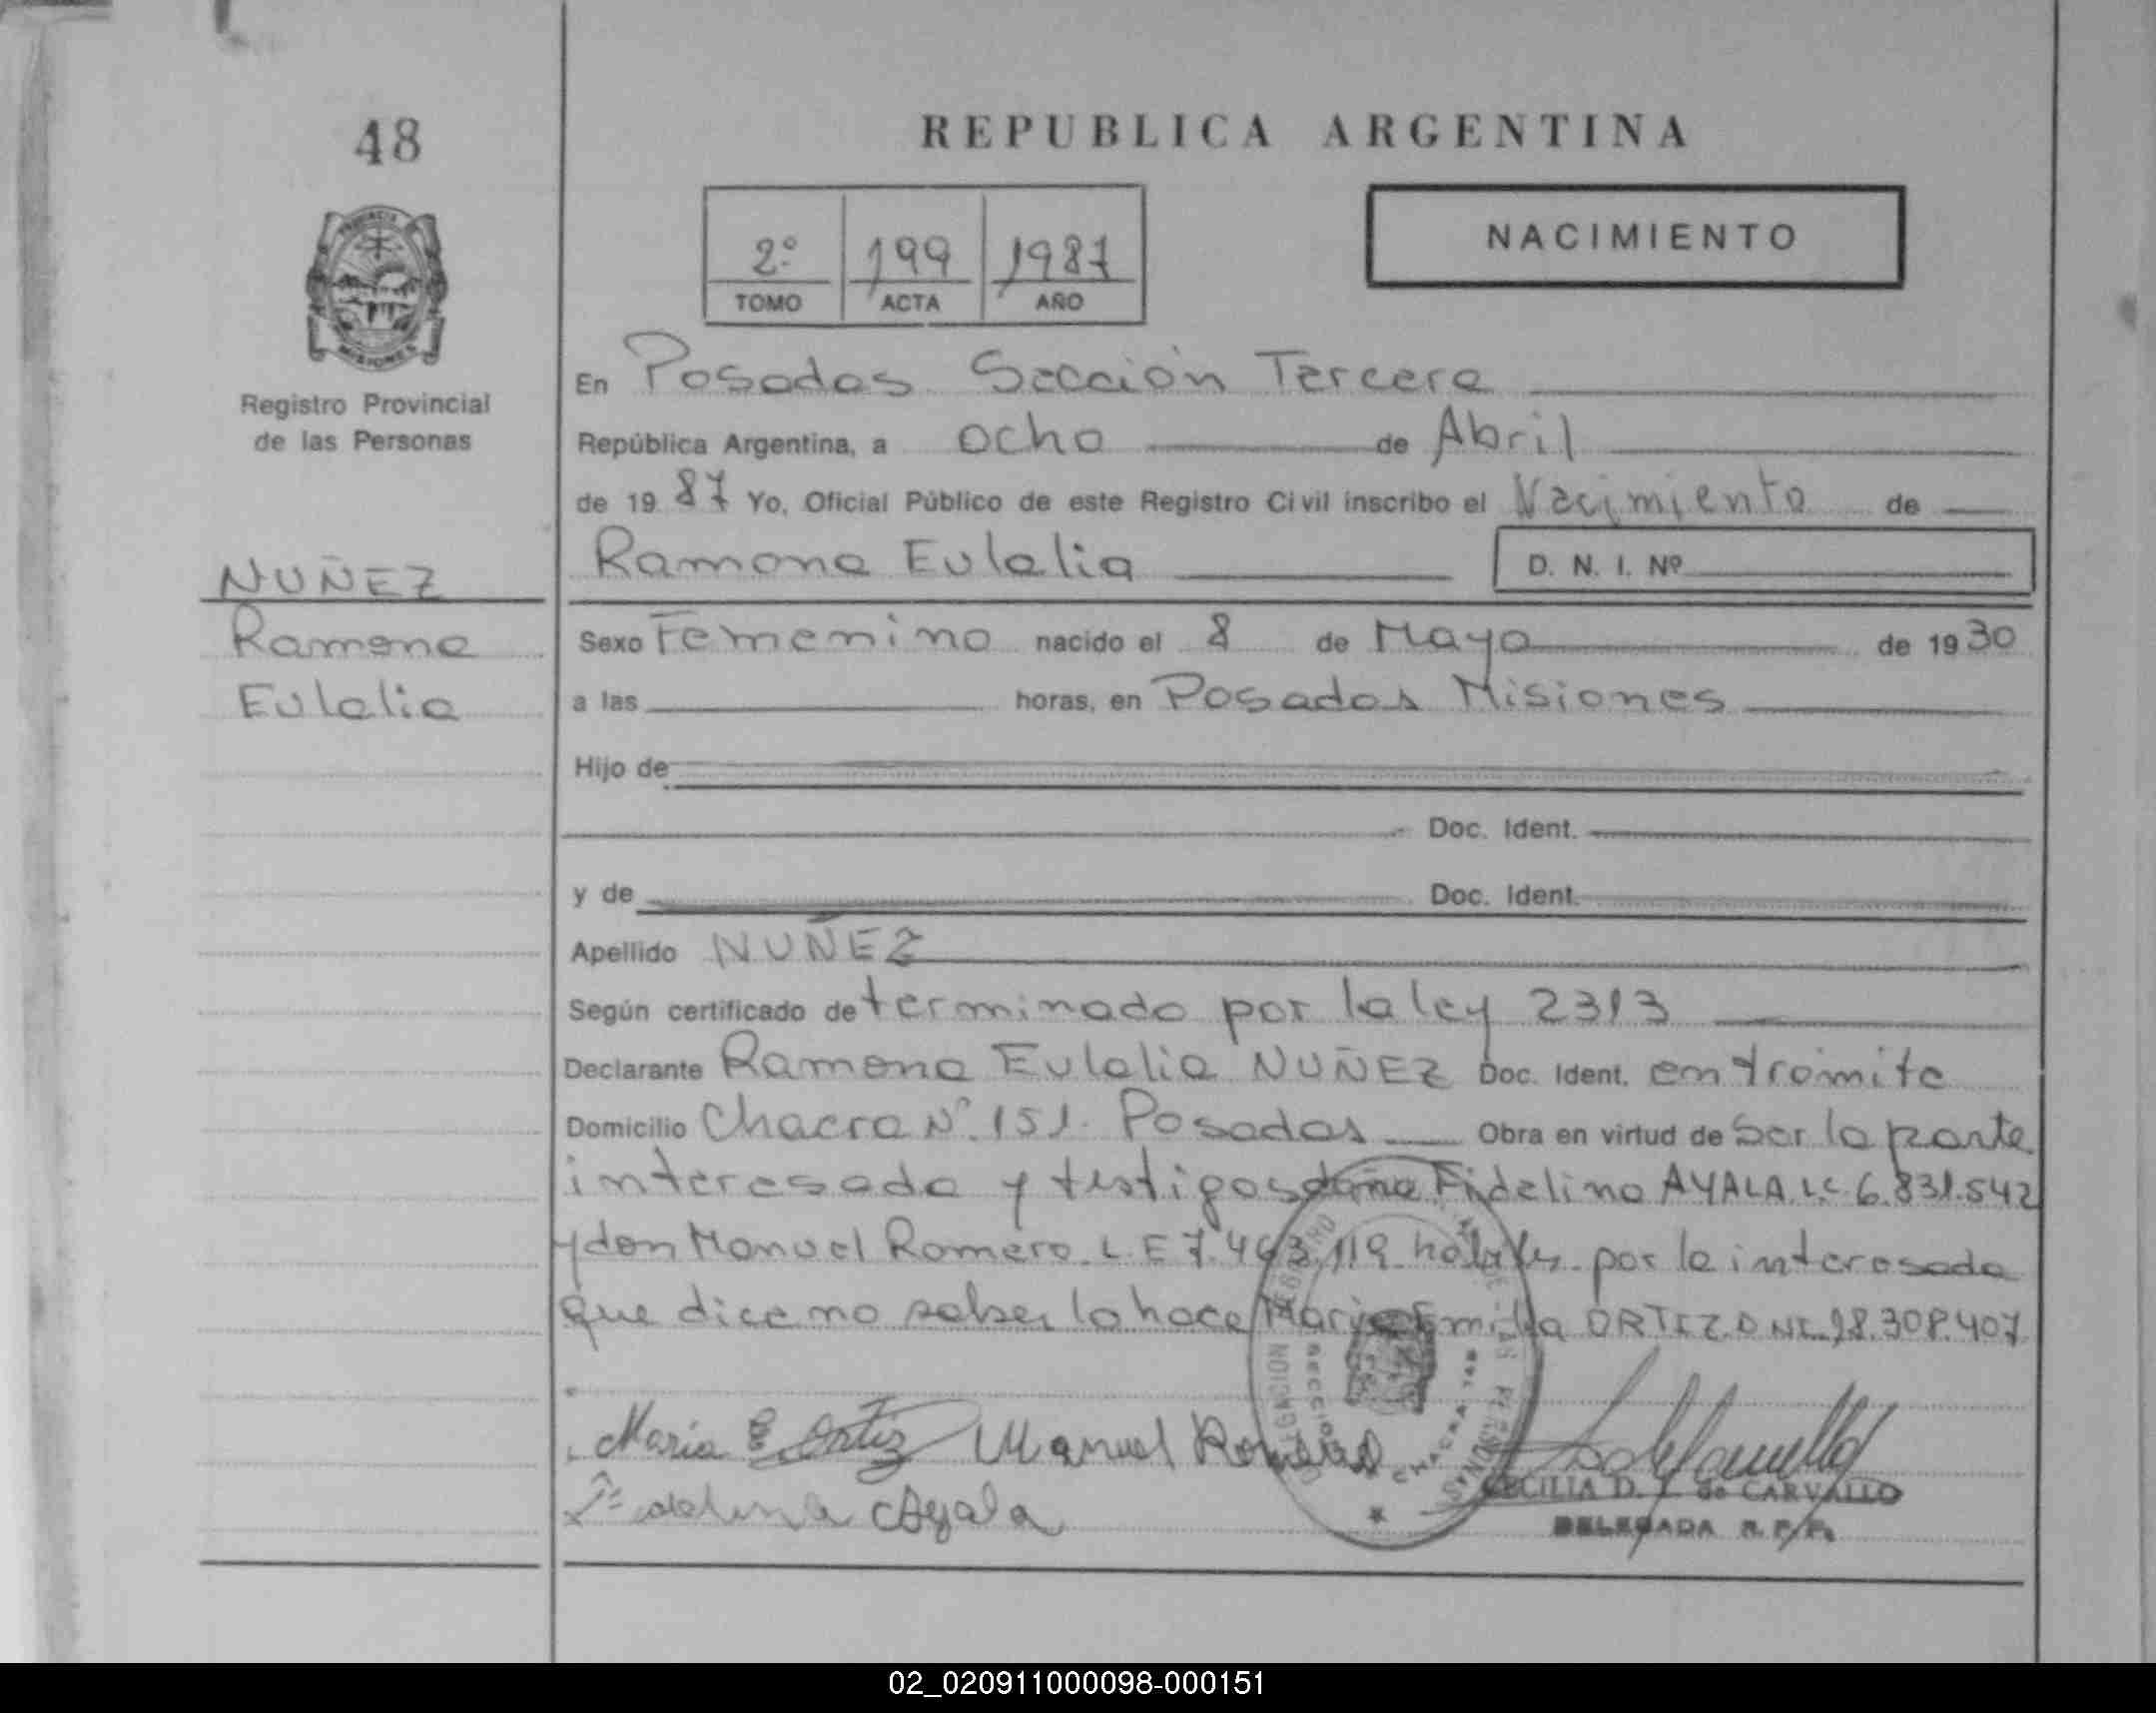 48
REPUBLICA ARGENTINA
2º 199 1987
TOMO ACTA AÑO
NACIMIENTO
PROVINCIA
MISIONES
Registro Provincial
de las Personas
NUÑEZ
Ramona
Eulalia
En Posadas Sección Tercera
República Argentina, a ocho de Abril
de 1987 Yo, Oficial Público de este Registro Civil inscribo el Nacimiento de
Ramona Eulalia D. N. I. Nº
Sexo Femenino nacido el 8 de Mayo de 1930
a las horas, en Posadas Misiones
Hijo de
Doc. Ident.
y de Doc. Ident.
Apellido NUÑEZ
Según certificado determinado por la ley 2313
Declarante Ramona Eulalia NUÑEZ Doc. Ident. en trámite
Domicilio Chacra Nº 151. Posadas Obra en virtud de ser la parte
interesada y testigos doña Fidelina AYALA L.C 6.831.542
y don Manuel Romero L.E 7.463.119 hábiles por la interesada
que dice no saber lo hace María Emilia ORTIZ D NI 18.308.407
Maria E Ortiz Manuel Romero
Ayala
CECILIA D. de CARVALLO
DELEGADA R. P. P.
02_020911000098-000151